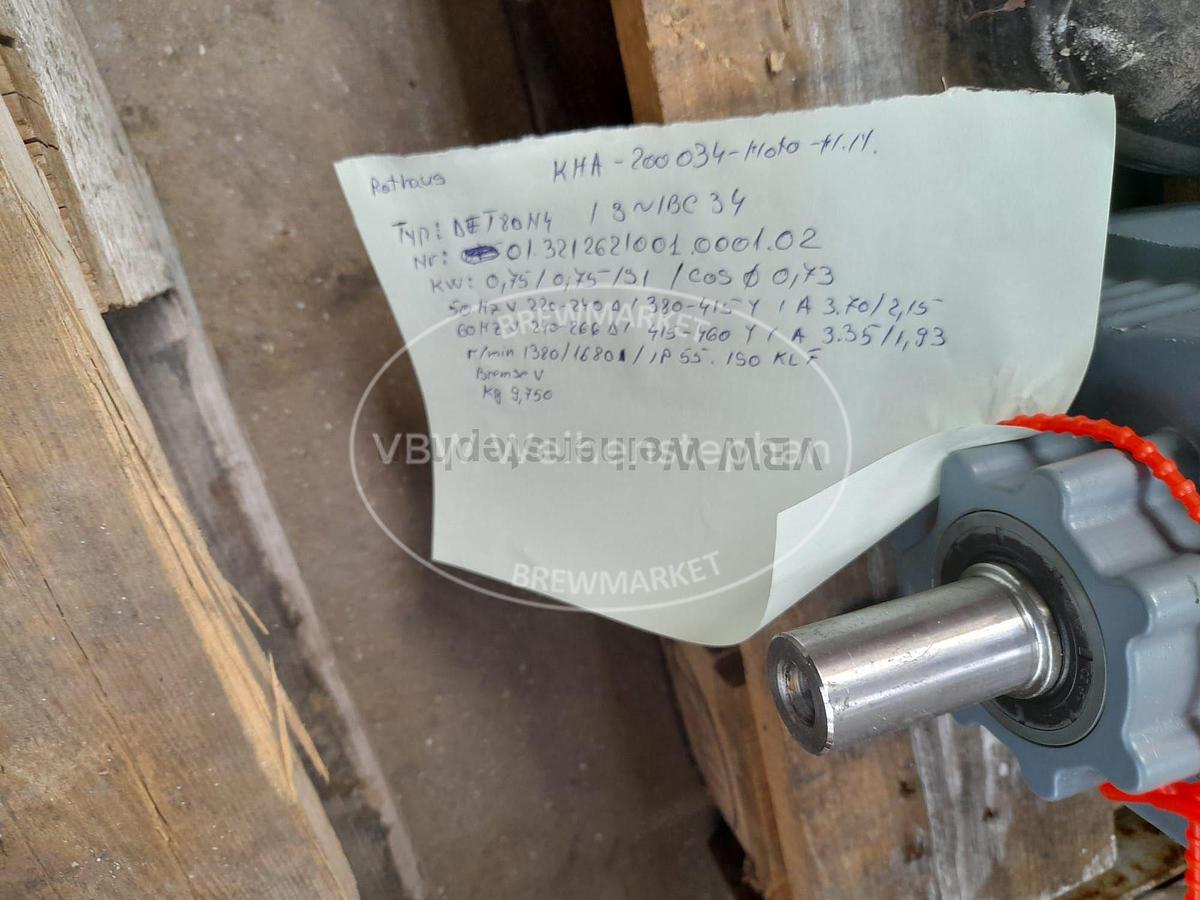 Rothaus KHA-200034-Moto-H.M.
Typ: DET80N4 / 3~IBC 34
Nr: 01.3212621001.0001.02
KW: 0,75/0,75/S1 /cos ϕ 0,73
50Hz V 220-240 Δ / 380-415 Y / A 3.70/2,15
60Hz 240-266 Δ / 415-460 Y / A 3.35/1,93
r/min 1380/1680 / IP 55. 150 KL F
Bremse V
Kg 9,750
BREWMARKET
VBW Weihenstephan
VBW Weihenstephan
BREWMARKET